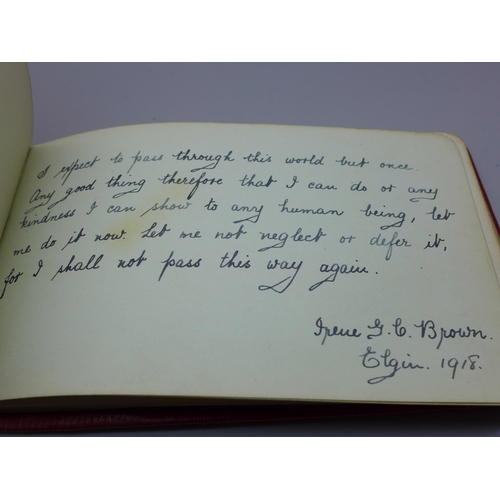 I expect to pass through this world but once.
Any good thing therefore that I can do or any
kindness I can show to any human being, let
me do it now. Let me not neglect or defer it,
for I shall not pass this way again.
Irene G. C. Brown.
Elgin. 1918.